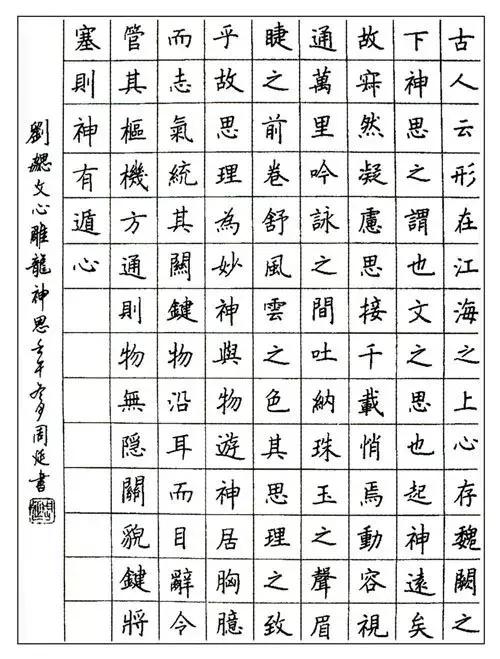 古人云形在江海之上心存魏闕之
下神思之謂也文之思也起神遠矣
故寂然凝慮思接千載悄焉動容視
通萬里吟詠之間吐納珠玉之聲眉
睫之前卷舒風雲之色其思理之致
乎故思理為妙神與物遊神居胸臆
而志氣統其關鍵物沿耳而目辭令
管其樞機方通則物無隱關貌鍵將
塞則神有遁心
劉勰文心雕龍神思壬午冬月周延書